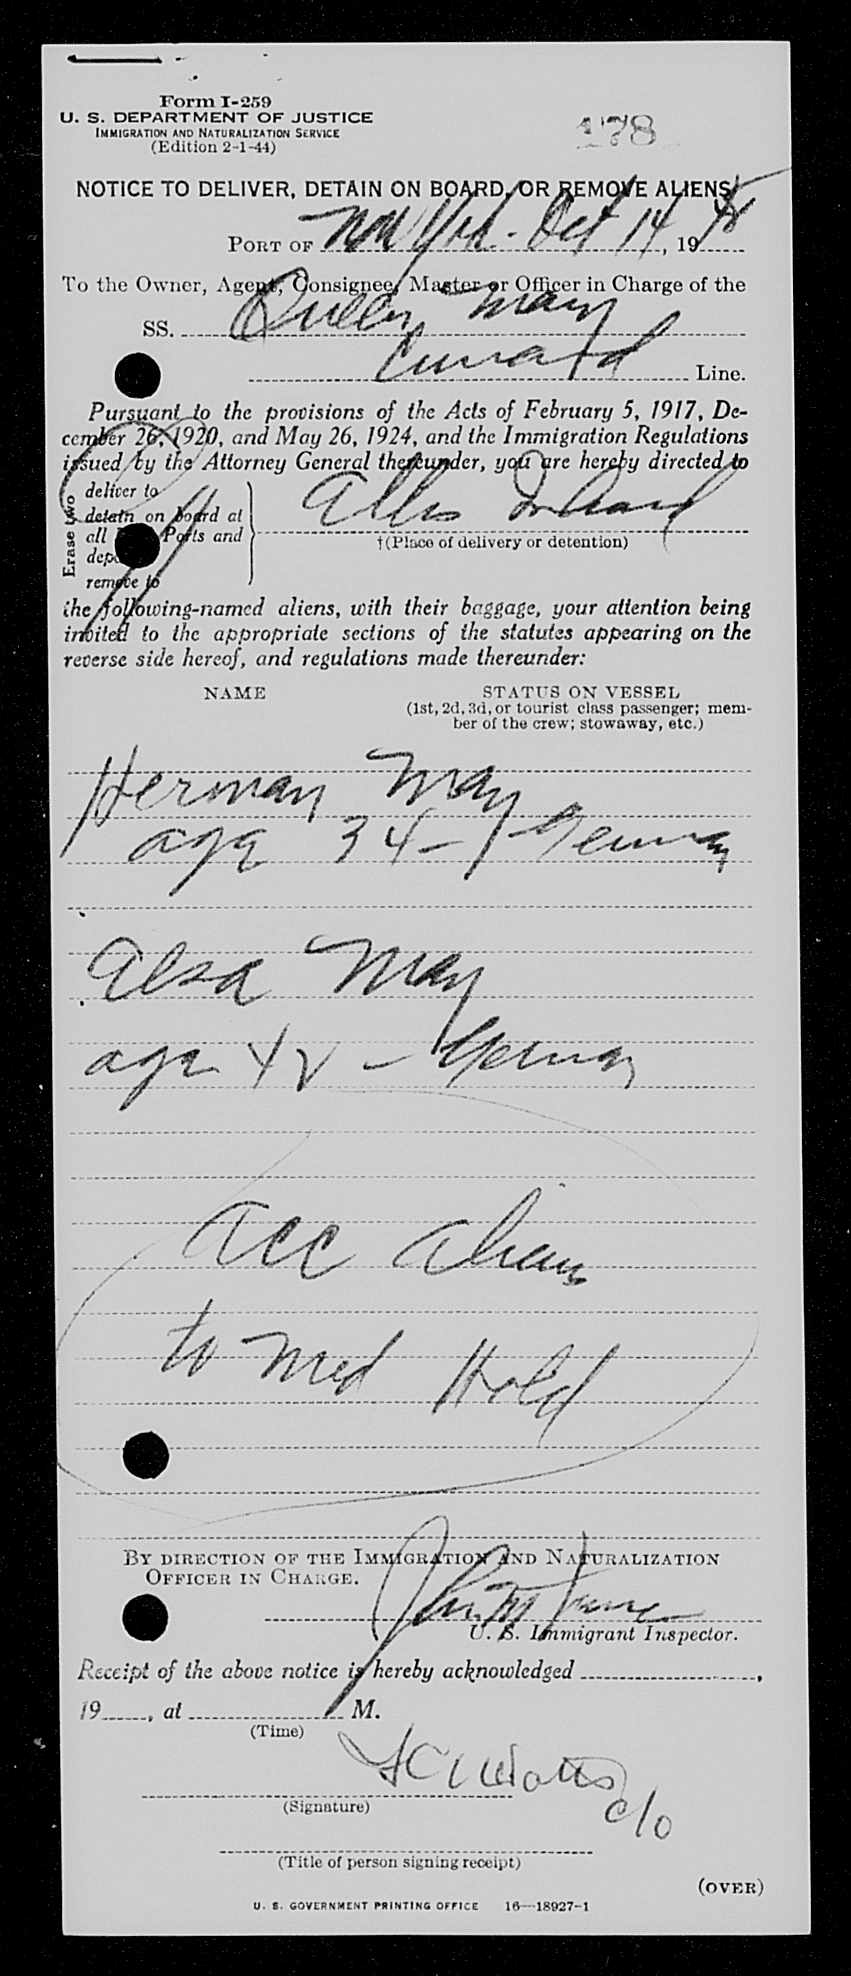 Form I-259
U. S. DEPARTMENT OF JUSTICE
IMMIGRATION AND NATURALIZATION SERVICE
(Edition 2-1-44)
178
NOTICE TO DELIVER, DETAIN ON BOARD, OR REMOVE ALIENS
PORT OF New York - Oct 14, 19
To the Owner, Agent, Consignee, Master or Officer in Charge of the
SS. Queen Mary
Cunard Line.
Pursuant to the provisions of the Acts of February 5, 1917, De-
cember 26, 1920, and May 26, 1924, and the Immigration Regulations
issued by the Attorney General thereunder, you are hereby directed to
Erase two
deliver to
detain on board at
all Ports and
remove to
Ellis Island
†(Place of delivery or detention)
the following-named aliens, with their baggage, your attention being
invited to the appropriate sections of the statutes appearing on the
reverse side hereof, and regulations made thereunder:
NAME
STATUS ON VESSEL
(1st, 2d, 3d, or tourist class passenger; mem-
ber of the crew; stowaway, etc.)
Herman May
age 34 - German
Elsa May
age 42 - German
acc aliens
to Med Hold
BY DIRECTION OF THE IMMIGRATION AND NATURALIZATION
OFFICER IN CHARGE.
U. S. Immigrant Inspector.
Receipt of the above notice is hereby acknowledged ,
19 , at M.
(Time)
Watts
c/o
(Signature)
(Title of person signing receipt)
(OVER)
U. S. GOVERNMENT PRINTING OFFICE 16—18927-1